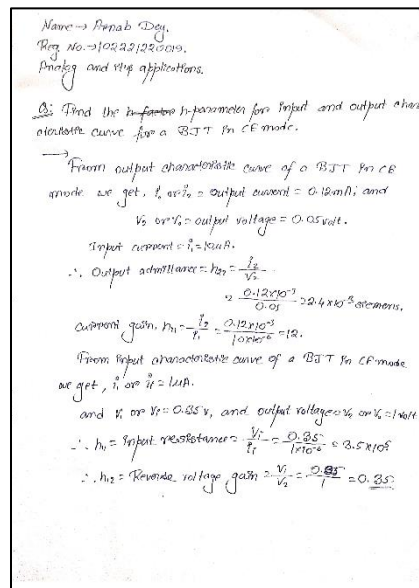 Name → Arnab Dey.
Reg No. → 10221220019.
Analog and its applications.
Q: Find the h-parameter for input and output char
cteristic curve for a BJT in CE mode.
→ From output characteristic curve of a BJT in CE
mode we get, i₂ or i₀ = output current = 0.12mA; and
V₂ or V₀ = output voltage = 0.05 volt.
Input current = i₁ = 10μA.
∴ Output admittance = h₂₂ = i₂/V₂
= 0.12×10⁻³/0.05 = 2.4×10⁻³ siemens.
Current gain, = i₂/i₁ = 0.12×10⁻³/10×10⁻⁶ = 12.
From input characteristic curve of a BJT in CE mode
we get, i₁ or = 1μA.
and V₁ or Vᵢ = 0.35 v, and output voltage = V₂ or V₀ = 1 volt
∴ h₁₁ = Input resistance = V₁/i₁ = 0.35/1×10⁻⁶ = 3.5×10⁵
∴ h₁₂ = Reverse voltage gain = V₁/V₂ = 0.35/1 = 0.35